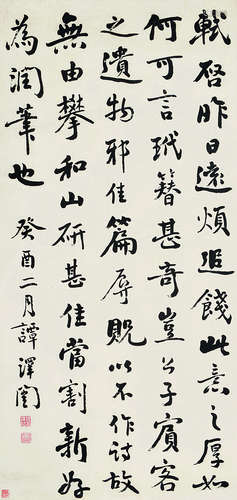 軾啓昨日遠煩追餞此意之厚如
何可言玳簪甚奇豈公子賓客
之遺物邪佳篇辱貺以不作詩故
無由攀和山研甚佳當割新好
為潤筆也 癸酉二月譚澤闓